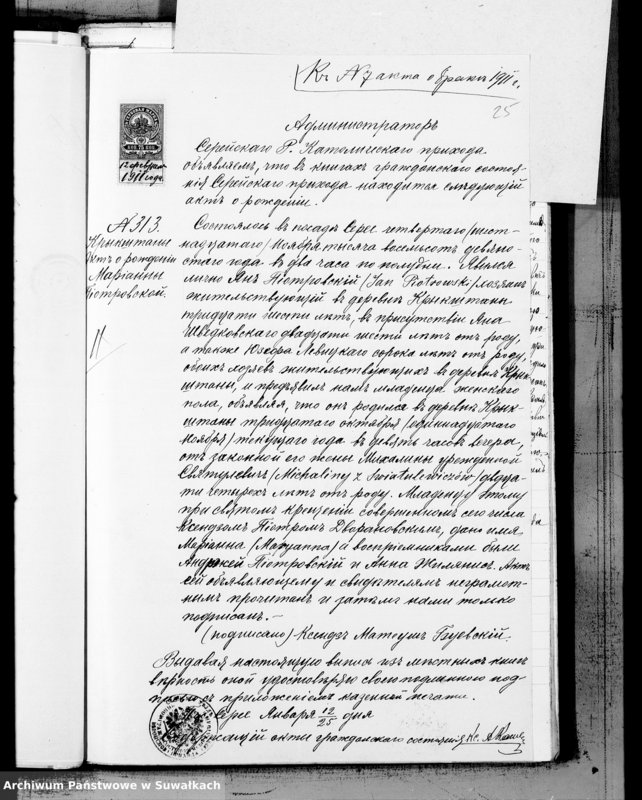 Къ № 7 акта о бракѣ 1911 г.
25
Администраторъ
Серейскаго Р. Католическаго прихода
объявляетъ, что въ книгахъ гражданскаго состоя-
нія Серейскаго прихода находится слѣдующій
актъ о рожденіи.
12 февраля
1911 года
№ 313.
Крикштаны
Актъ о рожденіи
Маріанны
Піотровской.
Состоялось въ посадѣ Серее четвертаго /шест-
надцатаго/ Ноября тысяча восемьсотъ девяно-
стаго года въ два часа по полудни. Явился
лично Янъ Піотровскій /Jan Piotrowski/ хозяинъ
жительствующій въ деревнѣ Крикштаны
тридцати шести лѣтъ, въ присутствіи Яна
Шведковскаго двадцати шести лѣтъ отъ роду,
а также Юзефа Левицкаго сорока лѣтъ отъ роду,
обоихъ хозяевъ жительствующихъ въ деревнѣ Крик-
штаны, и предъявилъ намъ младенца женскаго
пола, объявляя, что онъ родился въ деревнѣ Крик-
штаны тридцатаго октября /одиннадцатаго
Ноября/ текущаго года въ девять часовъ вечера,
отъ законной его жены Михалины урожденной
Святулевичъ /Michaliny z Swiatulewiczów/ двадца-
ти четырехъ лѣтъ отъ роду. Младенцу этому
при святомъ крещеніи совершенномъ сего числа
Ксендзомъ Піотромъ Дворановскимъ, дано имя
Маріанна /Maryanna/ а воспріемниками были
Андржей Піотровскій и Анна Жилянисъ. Актъ
сей объявляющему и свидѣтелямъ неграмот-
нымъ прочитанъ и затѣмъ нами только
подписанъ. —
(подписано) Ксендзъ Матеушъ Гаевскій.
Выдавая настоящую выпись изъ мѣстныхъ книгъ
вѣрность оной удостовѣряю своею подписью
съ приложеніемъ казенной печати.
Серее Января 12/25 дня
Содержащій акты гражданскаго состоянія Кс. А.
Archiwum Państwowe w Suwałkach